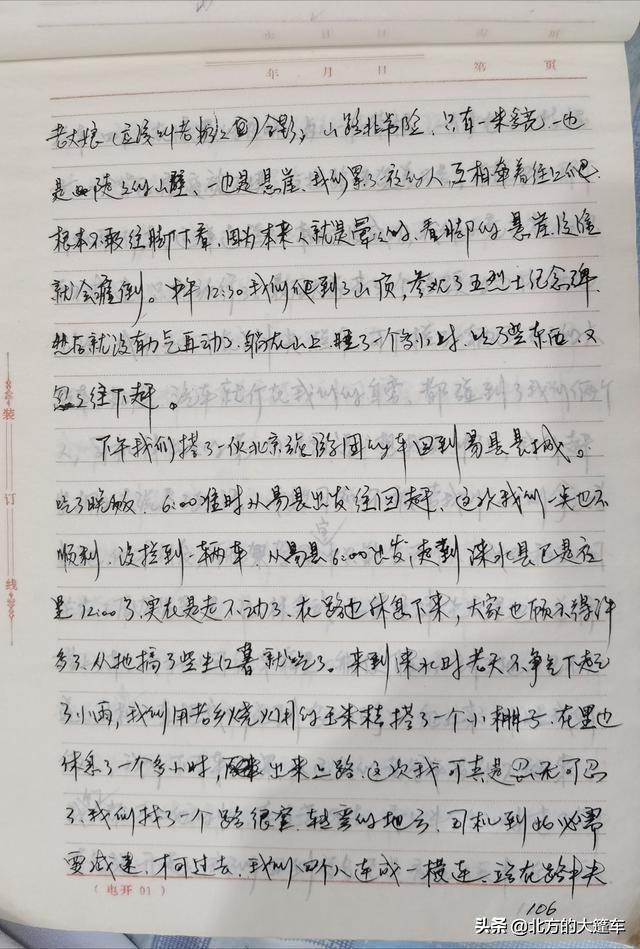 年 月 日 第 页
老大娘（应该叫老奶奶）合影，山路非常险，只有一米多宽，一边
是陡陡的山壁，一边是悬崖，我们累了夜的人，互相牵着往上爬，
根本不敢往脚下看，因为本来人就是晕晕的，看脚的悬崖没准
就会瘫倒。中午12:30我们爬到了山顶，参观了五烈士纪念碑，
然后就没有力气再动了，躺在山上睡了一个多小时，吃了些东西，又
忽忽往下赶。
下午我们搭了一伙北京旅游团的车回到易县县城。
吃了晚饭 6:00准时从易县出发往回赶，这次我们一点也不
顺利，没拉到一辆车，从易县6:00出发，走到涞水县已是夜
里12:00了，实在是走不动了，在路边休息下来，大家也顾不得许
多了，从地搞了些生红薯就吃了。来到涞水时老天不争气下起
了小雨，我们用老乡烧火用的玉米秸搭了一个小棚子，在里边
休息了一个多小时，出来上路，这次我可真是忍无可忍
了，我们找了一个路很窄，转弯的地方，司机到此必需
要减速，才可过去，我们四个人连成一横连，站在路中央
装
订
线
（电开01）
106
头条@北方的大篷车